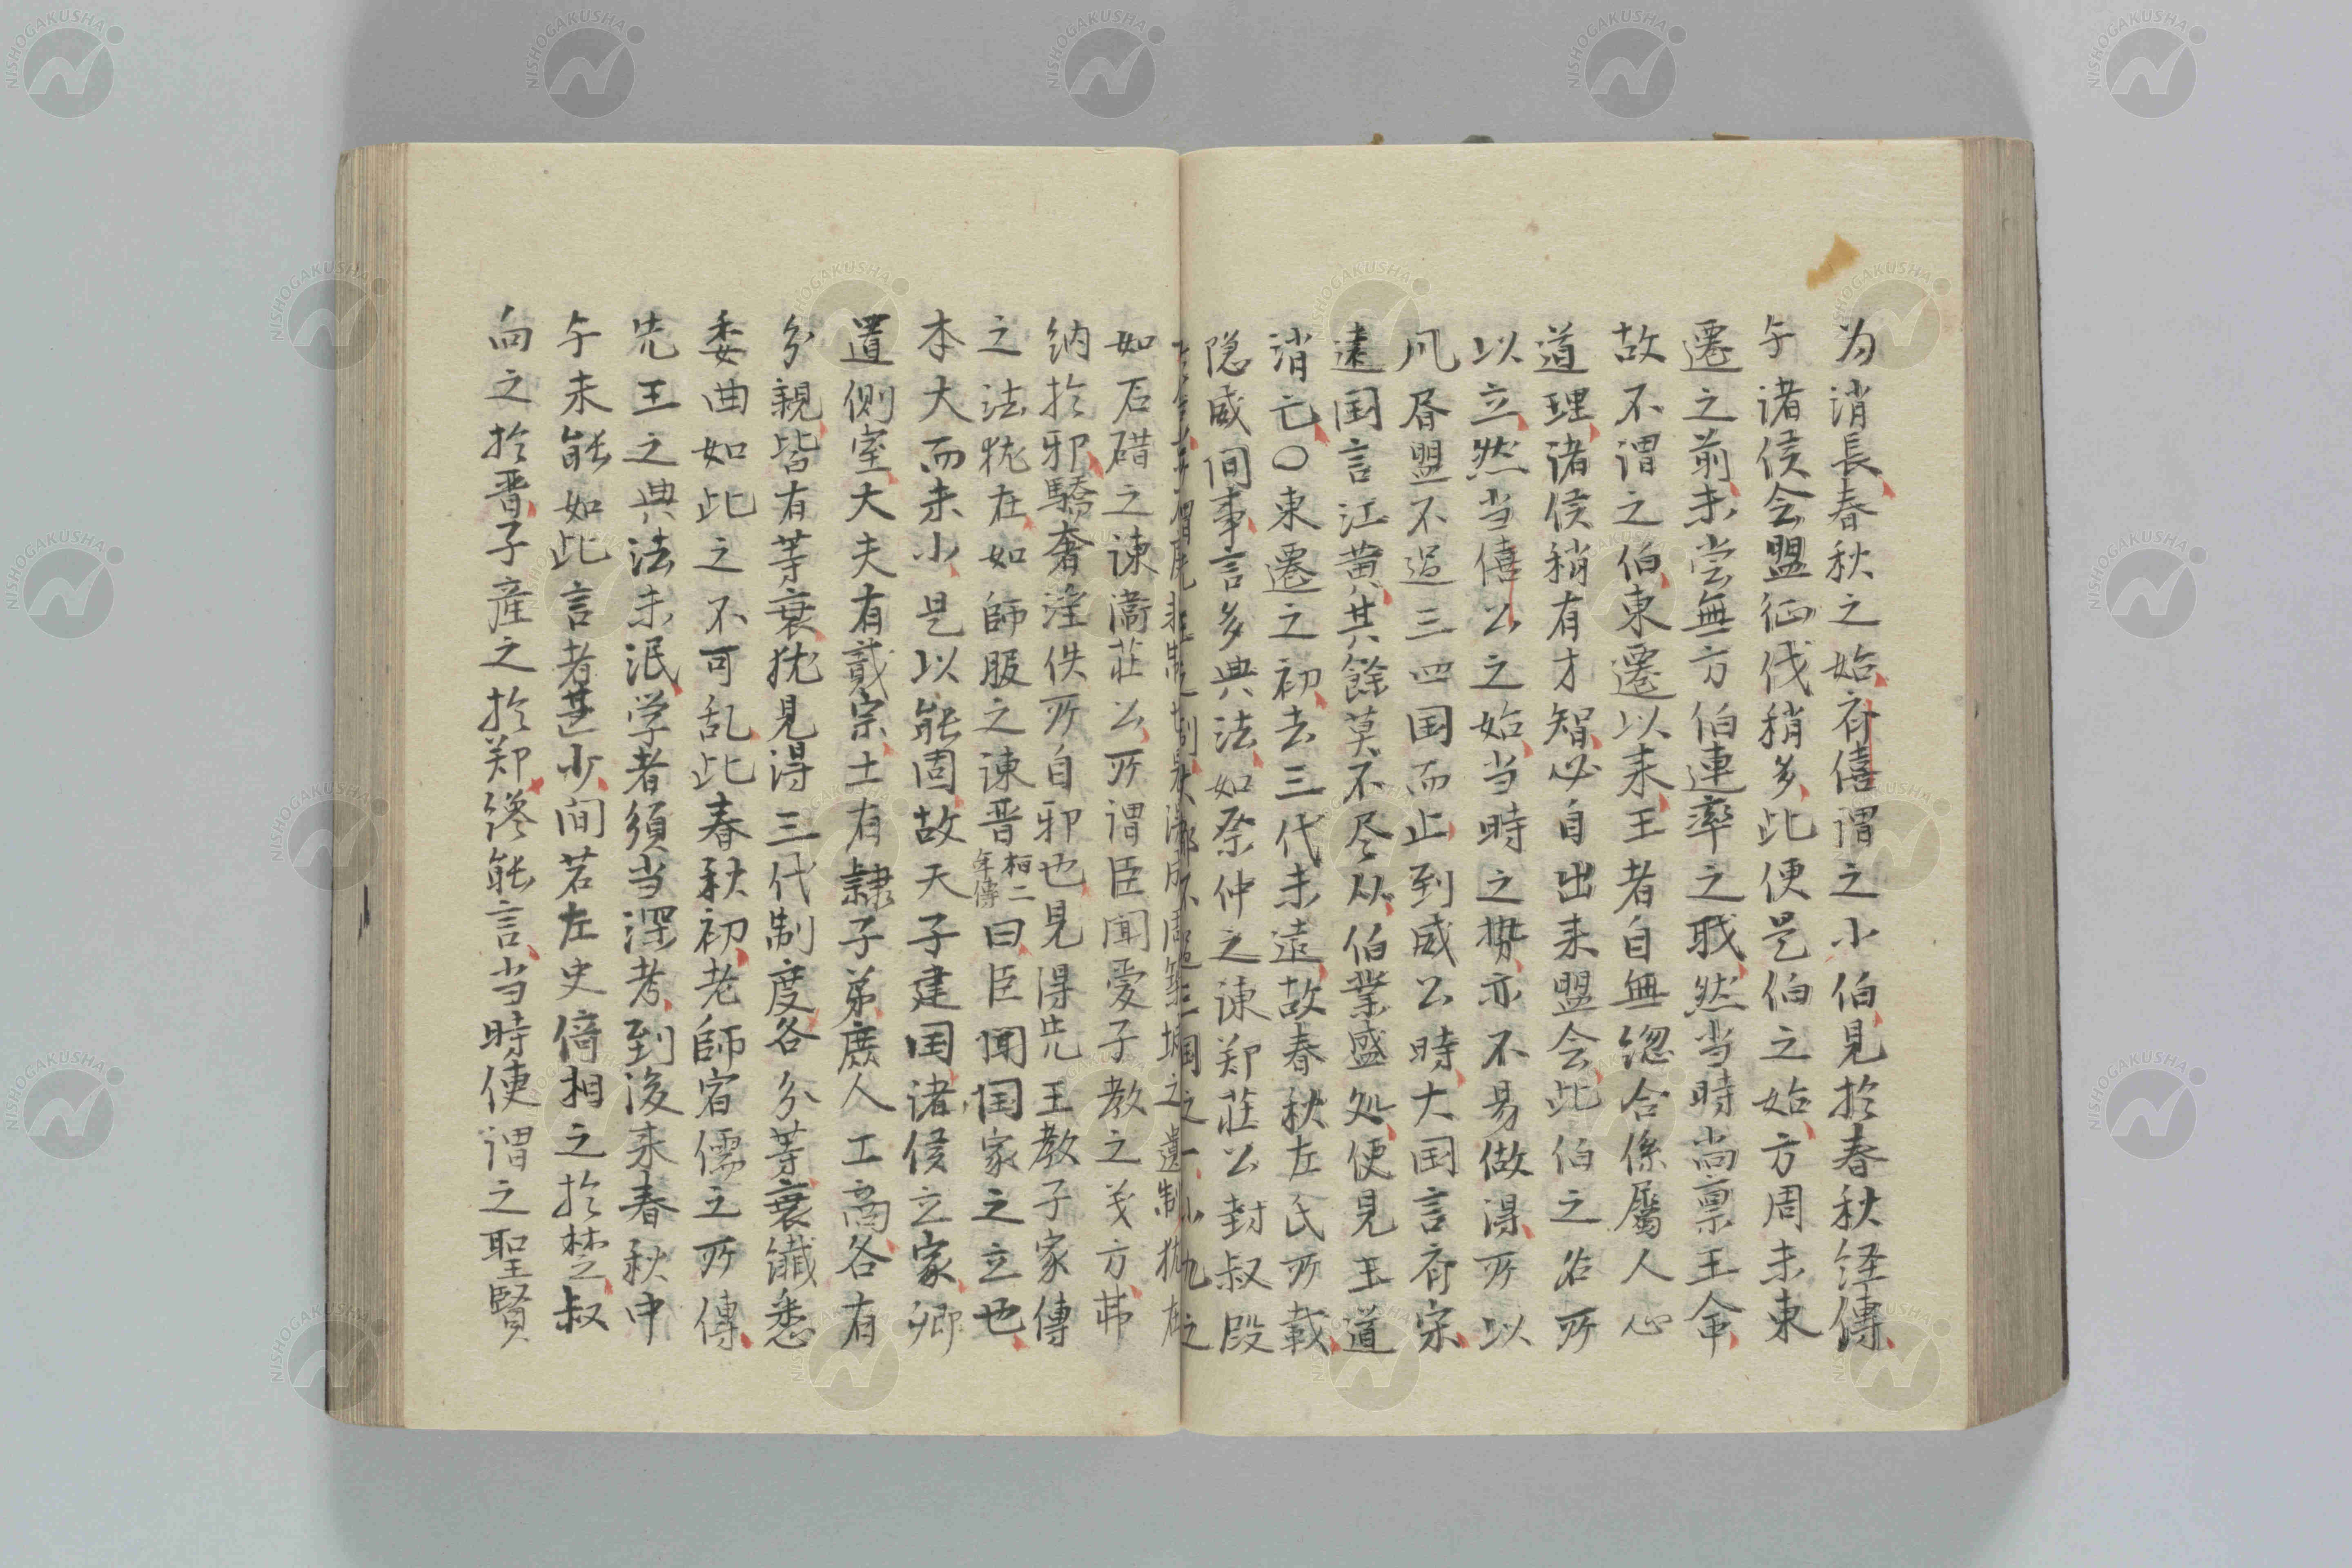 为消長春秋之始斉僖謂之小伯見於春秋経傳
于諸侯会盟征伐稍多此便是伯之始方周未東
遷之前未尝無方伯連率之职然当時尚禀王命
故不謂之伯東遷以来王者自無総合係屬人心
道理諸侯稍有才智必自出来盟会此伯之名所
以立然当僖公之始当時之势亦不易做得所以
凡屠盟不過三四国而止到威公時大国言斉宗
遠国言江黄其餘莫不尽从伯業盛処便見王道
消亡〇東遷之初去三代未遠故春秋左氏所載
隐威间事言多典法如祭仲之諌郑莊公封叔段
三国之一
之遺制犹在
如石碏之諌衞莊公所謂臣聞愛子教之义方弗
納於邪驕奢淫佚所自邪也見得先王教子家傳
之法犹在如師服之諌晋桓二年傳曰臣闻国家之立也
本大而末小是以能固故天子建国諸侯立家卿
置側室大夫有貳宗士有隷子弟庶人工商各有
分親皆有等衰犹見得三代制度各分等衰鐵悉
委曲如此之不可乱此春秋初老師宿儒立所傳
先王之典法未泯学者須当深考到後来春秋中
于未能如此言者甚少间若左史倚相之於楚叔
向之於晋子産之於郑終能言当時便謂之聖賢